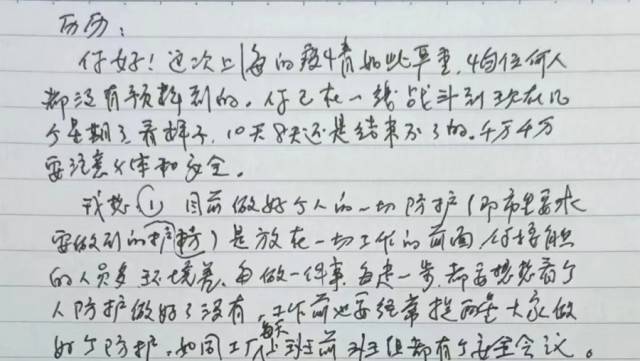 历历:
你好!这次上海的疫情如此严重,恐怕任何人
都没有预料到的。你已在一线战斗到现在几
个星期了看样子,10天8天还是结束不了的。千万千万
要注意身体和安全。
我想①目前做好个人的一切防护(即市里要求
要做到的护防)是放在一切工作的前面,你接触
的人员多环境差,每做一件事,每走一步,都要想想看个
人防护做好了没有,工作前也要经常提醒大家做
好个防护,如同工厂每天上班前班组都有个安全会议。